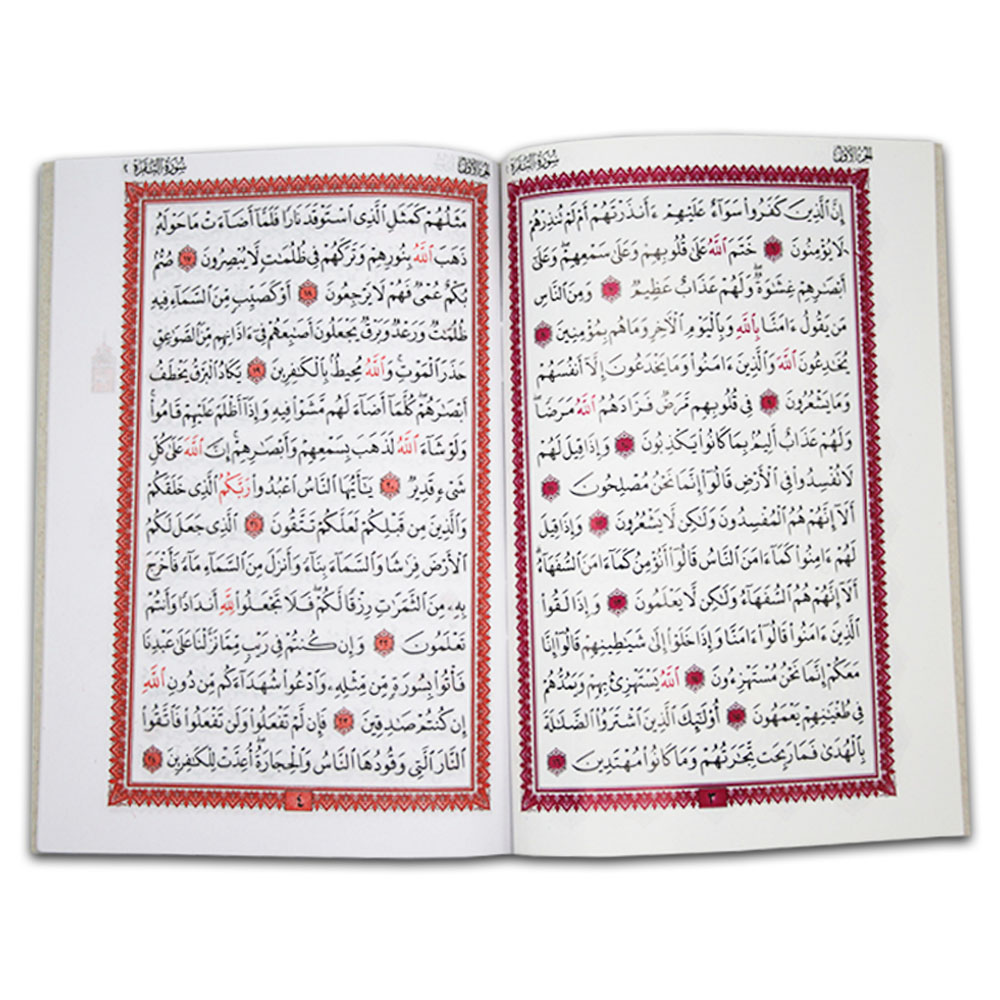 الجزء الأول سورة البقرة
إِنَّ ٱلَّذِينَ كَفَرُوا۟ سَوَآءٌ عَلَيْهِمْ ءَأَنذَرْتَهُمْ أَمْ لَمْ تُنذِرْهُمْ
لَا يُؤْمِنُونَ ٦ خَتَمَ ٱللَّهُ عَلَىٰ قُلُوبِهِمْ وَعَلَىٰ سَمْعِهِمْ ۖ وَعَلَىٰٓ
أَبْصَٰرِهِمْ غِشَٰوَةٌ ۖ وَلَهُمْ عَذَابٌ عَظِيمٌ ٧ وَمِنَ ٱلنَّاسِ
مَن يَقُولُ ءَامَنَّا بِٱللَّهِ وَبِٱلْيَوْمِ ٱلْءَاخِرِ وَمَا هُم بِمُؤْمِنِينَ ٨
يُخَٰدِعُونَ ٱللَّهَ وَٱلَّذِينَ ءَامَنُوا۟ وَمَا يَخْدَعُونَ إِلَّآ أَنفُسَهُمْ
وَمَا يَشْعُرُونَ ٩ فِى قُلُوبِهِم مَّرَضٌ فَزَادَهُمُ ٱللَّهُ مَرَضًا ۖ
وَلَهُمْ عَذَابٌ أَلِيمٌۢ بِمَا كَانُوا۟ يَكْذِبُونَ ١٠ وَإِذَا قِيلَ لَهُمْ
لَا تُفْسِدُوا۟ فِى ٱلْأَرْضِ قَالُوٓا۟ إِنَّمَا نَحْنُ مُصْلِحُونَ ١١
أَلَآ إِنَّهُمْ هُمُ ٱلْمُفْسِدُونَ وَلَٰكِن لَّا يَشْعُرُونَ ١٢ وَإِذَا قِيلَ
لَهُمْ ءَامِنُوا۟ كَمَآ ءَامَنَ ٱلنَّاسُ قَالُوٓا۟ أَنُؤْمِنُ كَمَآ ءَامَنَ ٱلسُّفَهَآءُ ۗ
أَلَآ إِنَّهُمْ هُمُ ٱلسُّفَهَآءُ وَلَٰكِن لَّا يَعْلَمُونَ ١٣ وَإِذَا لَقُوا۟
ٱلَّذِينَ ءَامَنُوا۟ قَالُوٓا۟ ءَامَنَّا وَإِذَا خَلَوْا۟ إِلَىٰ شَيَٰطِينِهِمْ قَالُوٓا۟ إِنَّا
مَعَكُمْ إِنَّمَا نَحْنُ مُسْتَهْزِءُونَ ١٤ ٱللَّهُ يَسْتَهْزِئُ بِهِمْ وَيَمُدُّهُمْ
فِى طُغْيَٰنِهِمْ يَعْمَهُونَ ١٥ أُو۟لَٰٓئِكَ ٱلَّذِينَ ٱشْتَرَوُا۟ ٱلضَّلَٰلَةَ
بِٱلْهُدَىٰ فَمَا رَبِحَت تِّجَٰرَتُهُمْ وَمَا كَانُوا۟ مُهْتَدِينَ ١٦
٣
الجزء الأول سورة البقرة ٢
مَثَلُهُمْ كَمَثَلِ ٱلَّذِى ٱسْتَوْقَدَ نَارًا فَلَمَّآ أَضَآءَتْ مَا حَوْلَهُۥ
ذَهَبَ ٱللَّهُ بِنُورِهِمْ وَتَرَكَهُمْ فِى ظُلُمَٰتٍ لَّا يُبْصِرُونَ ١٧ صُمٌّۢ
بُكْمٌ عُمْىٌ فَهُمْ لَا يَرْجِعُونَ ١٨ أَوْ كَصَيِّبٍ مِّنَ ٱلسَّمَآءِ فِيهِ
ظُلُمَٰتٌ وَرَعْدٌ وَبَرْقٌ يَجْعَلُونَ أَصَٰبِعَهُمْ فِىٓ ءَاذَانِهِم مِّنَ ٱلصَّوَٰعِقِ
حَذَرَ ٱلْمَوْتِ ۚ وَٱللَّهُ مُحِيطٌۢ بِٱلْكَٰفِرِينَ ١٩ يَكَادُ ٱلْبَرْقُ يَخْطَفُ
أَبْصَٰرَهُمْ ۖ كُلَّمَآ أَضَآءَ لَهُم مَّشَوْا۟ فِيهِ وَإِذَآ أَظْلَمَ عَلَيْهِمْ قَامُوا۟ ۚ
وَلَوْ شَآءَ ٱللَّهُ لَذَهَبَ بِسَمْعِهِمْ وَأَبْصَٰرِهِمْ ۚ إِنَّ ٱللَّهَ عَلَىٰ كُلِّ
شَىْءٍ قَدِيرٌ ٢٠ يَٰٓأَيُّهَا ٱلنَّاسُ ٱعْبُدُوا۟ رَبَّكُمُ ٱلَّذِى خَلَقَكُمْ
وَٱلَّذِينَ مِن قَبْلِكُمْ لَعَلَّكُمْ تَتَّقُونَ ٢١ ٱلَّذِى جَعَلَ لَكُمُ
ٱلْأَرْضَ فِرَٰشًا وَٱلسَّمَآءَ بِنَآءً وَأَنزَلَ مِنَ ٱلسَّمَآءِ مَآءً فَأَخْرَجَ
بِهِۦ مِنَ ٱلثَّمَرَٰتِ رِزْقًا لَّكُمْ ۖ فَلَا تَجْعَلُوا۟ لِلَّهِ أَندَادًا وَأَنتُمْ
تَعْلَمُونَ ٢٢ وَإِن كُنتُمْ فِى رَيْبٍ مِّمَّا نَزَّلْنَا عَلَىٰ عَبْدِنَا
فَأْتُوا۟ بِسُورَةٍ مِّن مِّثْلِهِۦ وَٱدْعُوا۟ شُهَدَآءَكُم مِّن دُونِ ٱللَّهِ
إِن كُنتُمْ صَٰدِقِينَ ٢٣ فَإِن لَّمْ تَفْعَلُوا۟ وَلَن تَفْعَلُوا۟ فَٱتَّقُوا۟
ٱلنَّارَ ٱلَّتِى وَقُودُهَا ٱلنَّاسُ وَٱلْحِجَارَةُ ۖ أُعِدَّتْ لِلْكَٰفِرِينَ ٢٤
٤